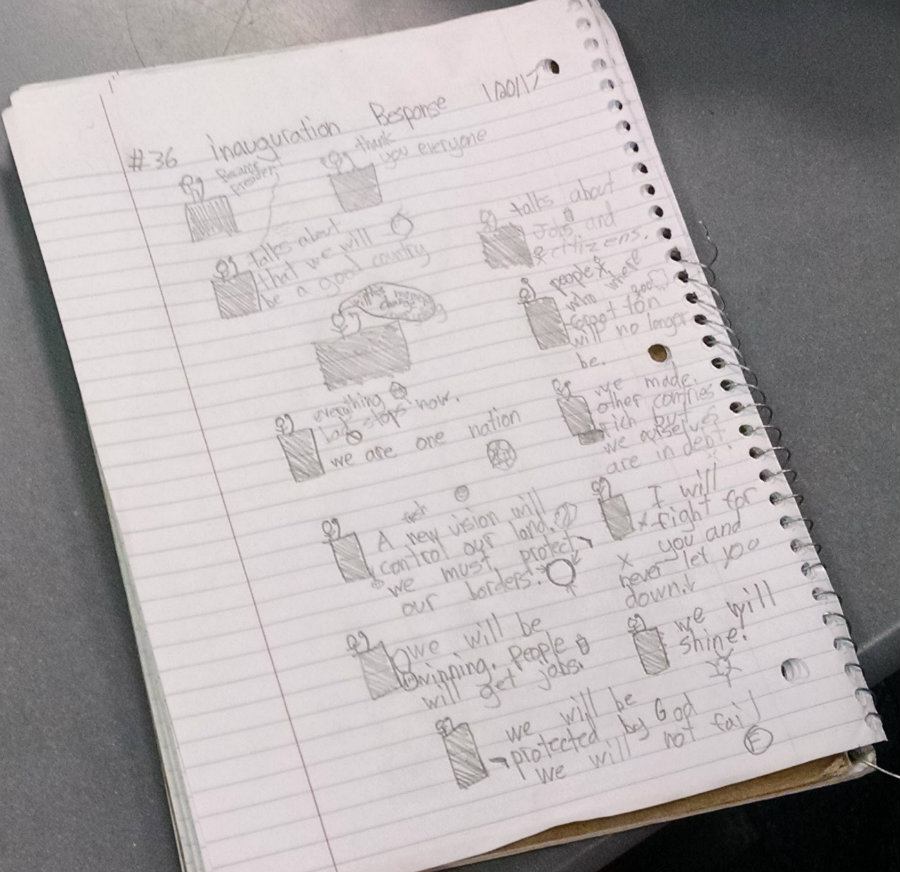 #36 Inauguration Response 1/20/17
Became
President
thank
you everyone
talks about
that we will
be a good country
talks about
Jobs and
citizens.
change
people
who where
forgotton
will no longer
be.
everything
bad stops now.
we are one nation
we made
other contries
rich but
we ourselves
are in debt
A new vision will
control our land.
we must protect
our borders.
I will
fight for
you and
never let you
down.
we will be
winning. people
will get jobs.
we will
shine!
we will be
protected by God
we will not fail
F